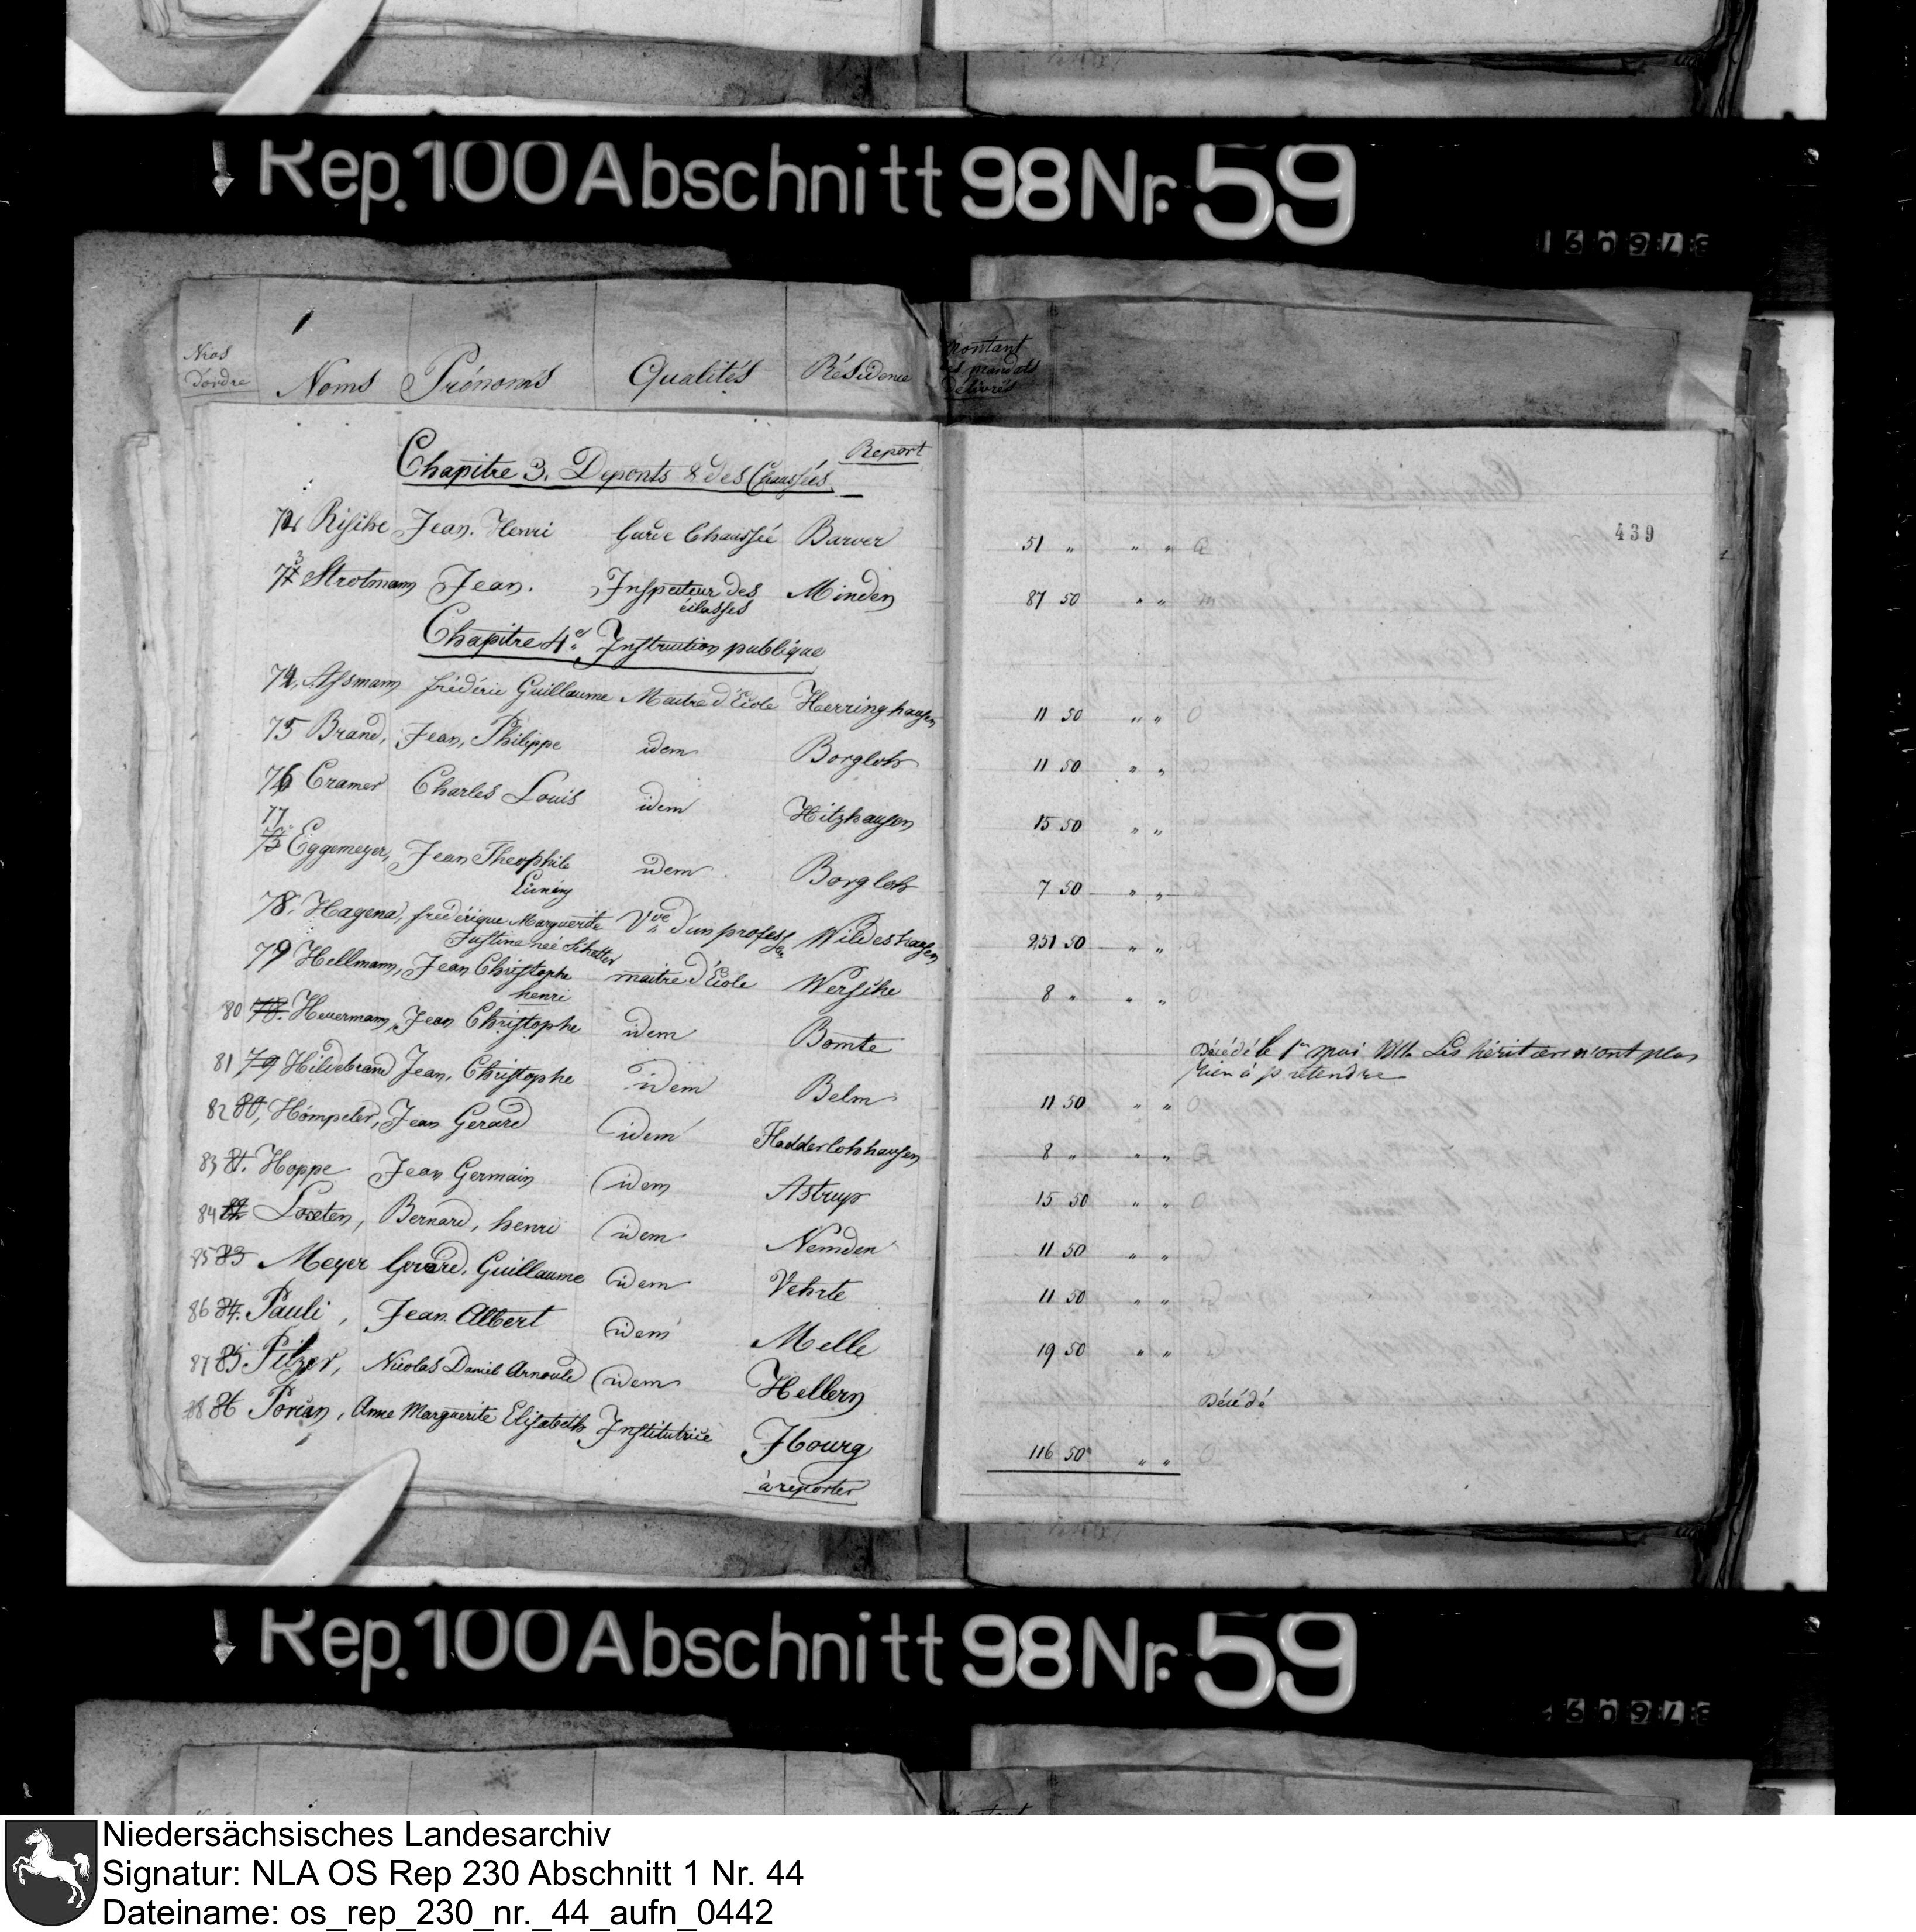 Rep. 100 Abschnitt 98 Nr. 59
Nros d'ordre Noms Prénoms Qualités Résidence Montant des mandats délivrés
Report
Chapitre 3. Deponts & des Chaussées
439
72 Rische Jean. Henri Garde Chaussée Barver 51 " " "
73 Strotmann Jean. Inspecteur des Minden 87 50 " "
Chapitre 4e. Instruction publique
74, Assmann frédéric Guillaume Maitre d'École Herringhausen 11 50 " "
75 Brand, Jean, Philippe idem Borgloh 11 50 " "
76 Cramer Charles Louis idem Hitzhausen 15 50 " "
77 Eggemeyer, Jean Theophile idem Borgloh 7 50 " "
78. Hagena, frédérique Marguerite Vve d'un profess Wildeshausen 251 50 " "
Justine née Schetter
79 Hellmann, Jean Christophe maitre d'École Wersche 8 " " "
henri
80 78. Heuermann, Jean Christophe idem Bomte Décédé le 1er mai 1811. Les héritiers n'ont plus
rien à prétendre
81 79 Hildebrand Jean, Christophe idem Belm 11 50 " "
82 80, Hömpeler, Jean Gerard idem Fladderlohhausen 8 " " "
83 81. Hoppe Jean Germain idem Astrup 15 50 " "
84 82 Loxten, Bernard, henri idem Nemden 11 50 " "
85 83 Meyer Gerard, Guillaume idem Vehrte 11 50 " "
86 84. Pauli, Jean Albert idem Melle 19 50 " "
87 85 Pilzer, Nicolas Daniel Arnould idem Hellern Décédé
88 86 Porian, Anne Marguerite Elisabeth Institutrice Ibourg 116 50 " "
à reporter
Rep. 100 Abschnitt 98 Nr. 59
Niedersächsisches Landesarchiv
Signatur: NLA OS Rep 230 Abschnitt 1 Nr. 44
Dateiname: os_rep_230_nr._44_aufn_0442